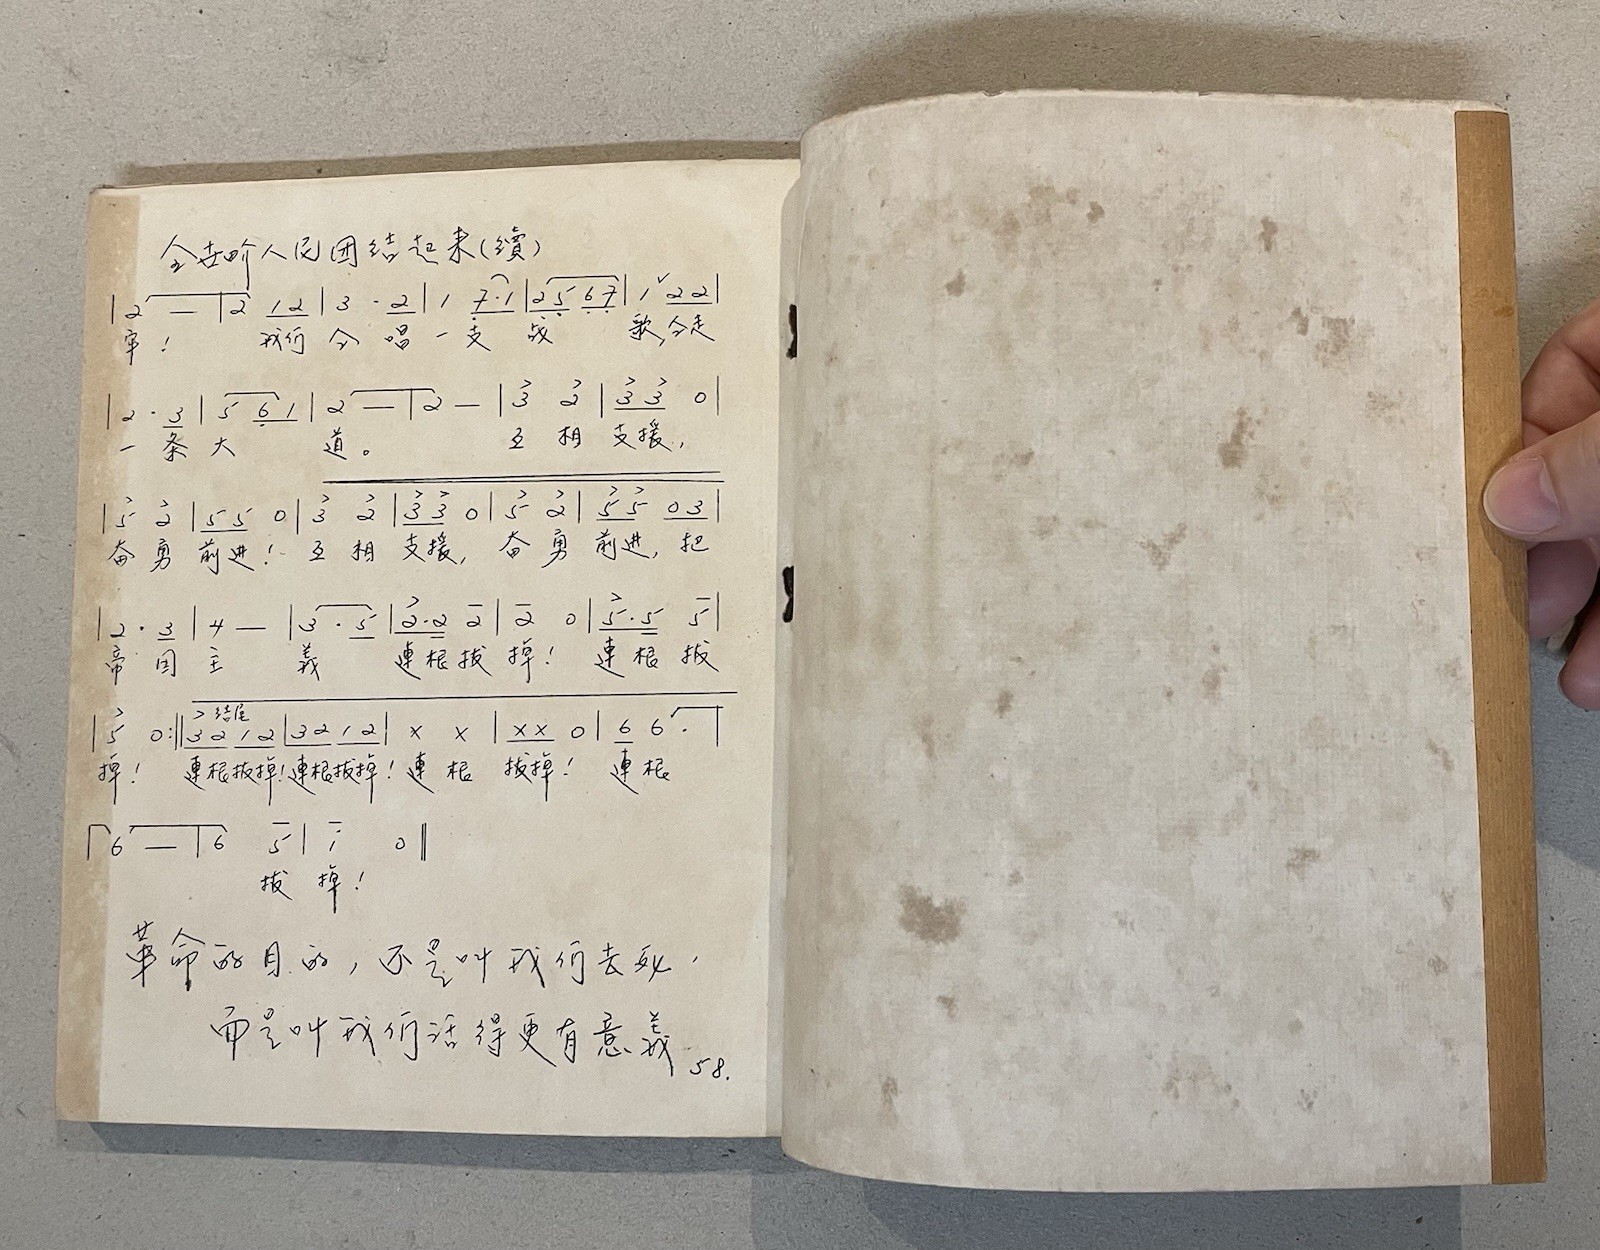 全世界人民团结起来(續)
|2 — |2 1 2 |3 · 2 |1 7·1 |2 5 6 7 |1 ˇ2 2|
牢! 我们 仝 唱 一 支 战 歌,仝走
|2 · 3 |5 6 1 |2 — |2 — |3 2 |3 3 0|
一 条 大 道。 互 相 支援,
|5 2 |5 5 0 |3 2 |3 3 0 |5 2 |5 5 0 3|
奋 勇 前进! 互 相 支援, 奋 勇 前进, 把
|2 · 3 |4 — |3 · 5 |2·2 2 |2 0 |5·5 5|
帝 囯 主 義 連根拔 掉! 連根 拔
结尾
|5 0:‖3 2 1 2 |3 2 1 2| x x |x x 0 |6 6 · |
掉! 連根拔掉!連根拔掉!連 根 拔掉! 連根
|6 — |6 5 |1 0‖
拔 掉!
革命的目的,不是叫我们去死,
而是叫我们活得更有意義
58.